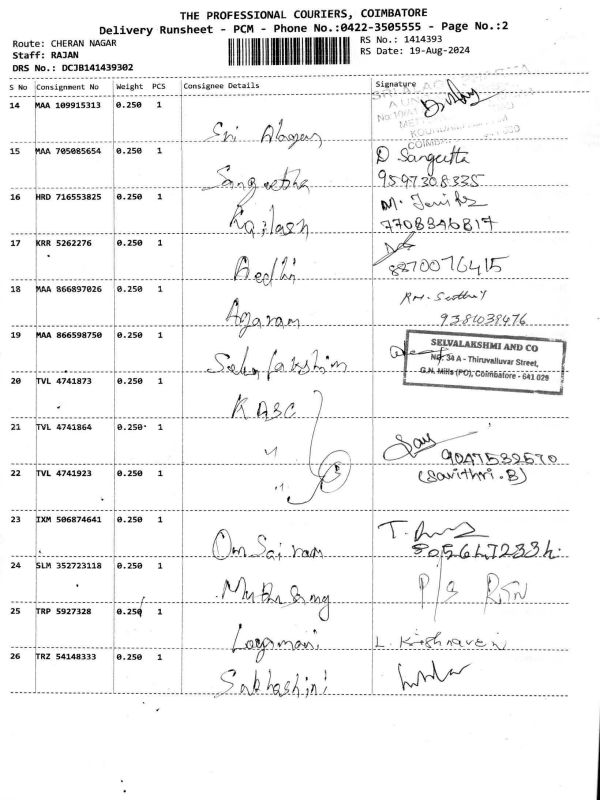 THE PROFESSIONAL COURIERS, COIMBATORE
Delivery Runsheet - PCM - Phone No.:0422-3505555 - Page No.:2
Route: CHERAN NAGAR
RS No.: 1414393
Staff: RAJAN
RS Date: 19-Aug-2024
DRS No.: DCJB141439302
S No Consignment No Weight PCS Consignee Details Signature
14 MAA 109915313 0.250 1
Sri
15 MAA 705085654 0.250 1 D Sangeetha
Sangeetha 9597308335
16 HRD 716553825 0.250 1 M.
Kailash 7708346817
17 KRR 5262276 0.250 1
Aedhi 8870076415
18 MAA 866897026 0.250 1
Agaram 9384039476
19 MAA 866598750 0.250 1 SELVALAKSHMI AND CO
NO: 34 A - Thiruvalluvar Street,
G.N. Mills (PO), Coimbatore - 641 029
20 TVL 4741873 0.250 1
KABC
21 TVL 4741864 0.250 1
" 9047532570
22 TVL 4741923 0.250 1 (Savithri.B)
"
23 IXM 506874641 0.250 1 T.
Om Sai ram
24 SLM 352723118 0.250 1
25 TRP 5927328 0.250 1
Logamani L.
26 TRZ 54148333 0.250 1
Subhashini